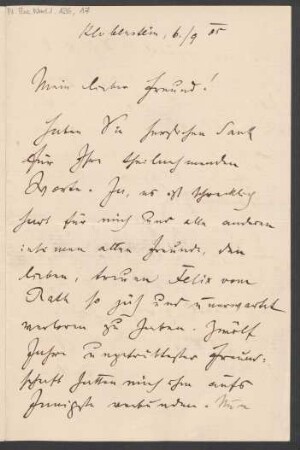 Klobenstein, 6./9 05
Mein lieber Freund!
Haben Sie herzlichen Dank
für Ihre theilnehmenden
Worte. Ja, es ist schrecklich
hart für mich und alle anderen
intimen alten Freunde, den
lieben, treuen Felix vom
Rath so jäh und unerwartet
verloren zu haben. Zwölf
Jahre ungetrübtester Freund-
schaft hatten mich ihm aufs
Innigste verbunden. Nun